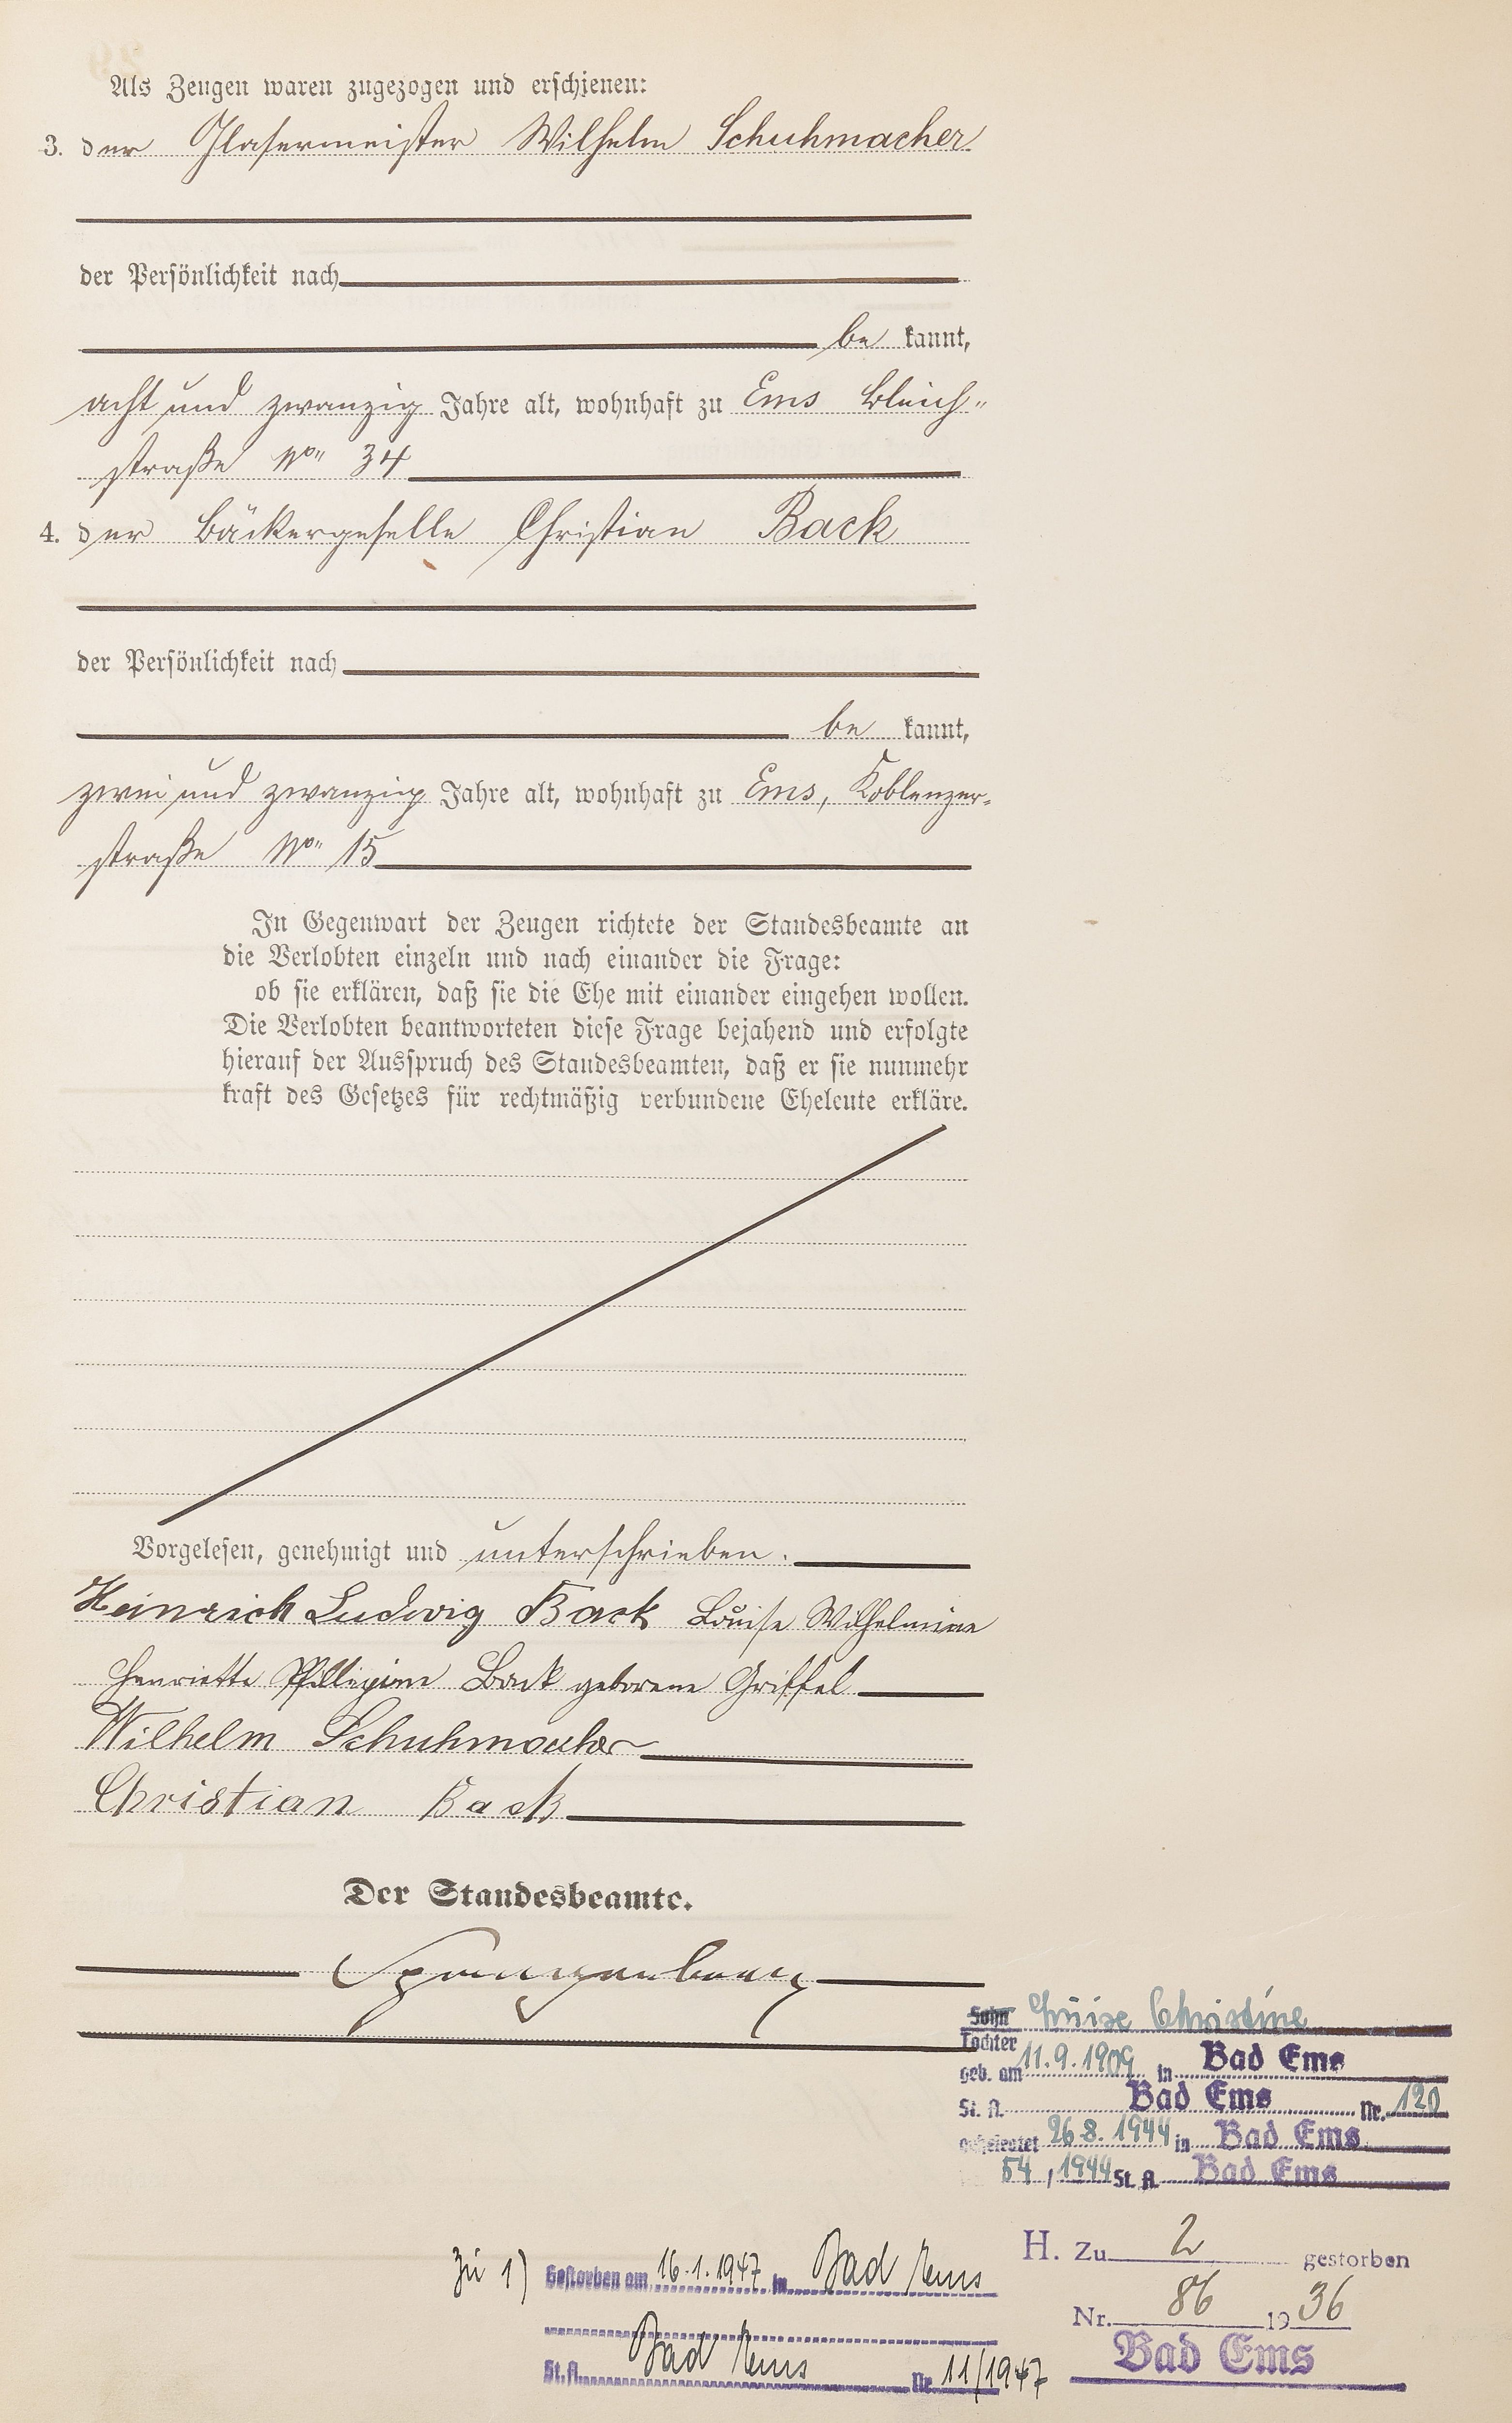 Als Zeugen waren zugezogen und erschienen:
3. der Glasermeister Wilhelm Schuhmacher
der Persönlichkeit nach
be kannt,
acht und zwanzig Jahre alt, wohnhaft zu Ems Bleich-
straße No 34
4. der Bäckergeselle Christian Back
der Persönlichkeit nach
be kannt,
zwei und zwanzig Jahre alt, wohnhaft zu Ems, Koblenzer-
straße No 15
In Gegenwart der Zeugen richtete der Standesbeamte an
die Verlobten einzeln und nach einander die Frage:
ob sie erklären, daß sie die Ehe mit einander eingehen wollen.
Die Verlobten beantworteten diese Frage bejahend und erfolgte
hierauf der Ausspruch des Standesbeamten, daß er sie nunmehr
kraft des Gesetzes für rechtmäßig verbundene Eheleute erkläre.
Vorgelesen, genehmigt und unterschrieben.
Heinrich Ludwig Back Louise Wilhelmine
Henriette Back geborene Griffel
Wilhelm Schuhmacher
Christian Back
Der Standesbeamte.
Spangenberg
Sohn Luise Christine
Tochter
geb. am 11.9.1909 in Bad Ems
St. A. Bad Ems Nr. 120
geheiratet 26.8.1944 in Bad Ems
54 / 1944 St. A. Bad Ems
H. Zu 2 gestorben
Nr. 86 1936
Bad Ems
Zu 1) Gestorben am 16.1.1947 in Bad Ems
St. A. Bad Ems Nr. 11/1947